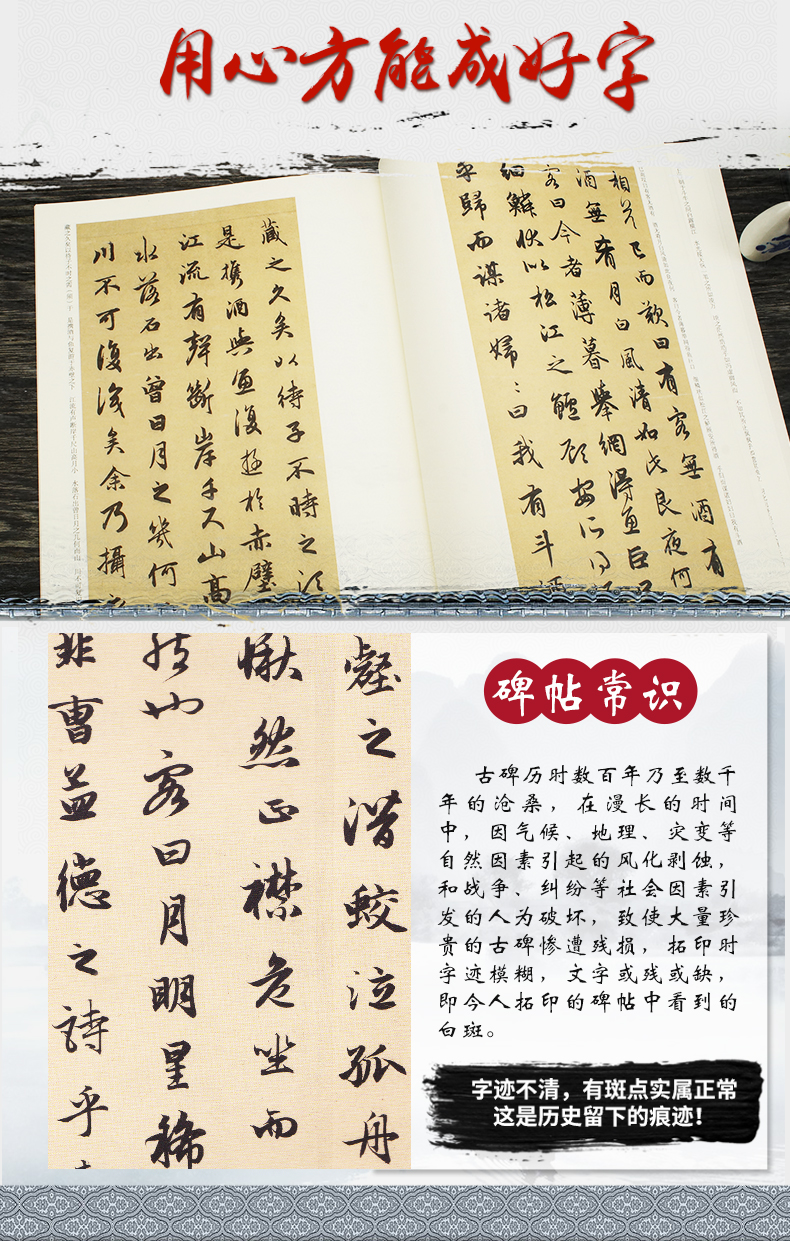 用心方能成好字
相答已而歎曰有客無酒有
酒無肴月白風清如此良夜何
客曰今者薄暮舉網得魚巨口
細鱗狀似松江之鱸顧安所得
乎歸而謀諸婦〻曰我有斗
藏之久矣以待子不時之須
是攜酒與魚復遊於赤壁
江流有聲斷岸千尺山高
水落石出曾日月之幾何
川不可復識矣余乃攝
壑之潛蛟泣孤舟
愀然正襟危坐而
也客曰月明星稀
非曹孟德之詩乎
碑帖常识
古碑历时数百年乃至数千
年的沧桑，在漫长的时间
中，因气候、地理、灾变等
自然因素引起的风化剥蚀，
和战争、纠纷等社会因素引
发的人为破坏，致使大量珍
贵的古碑惨遭残损，拓印时
字迹模糊，文字或残或缺，
即今人拓印的碑帖中看到的
白斑。
字迹不清，有斑点实属正常
这是历史留下的痕迹！